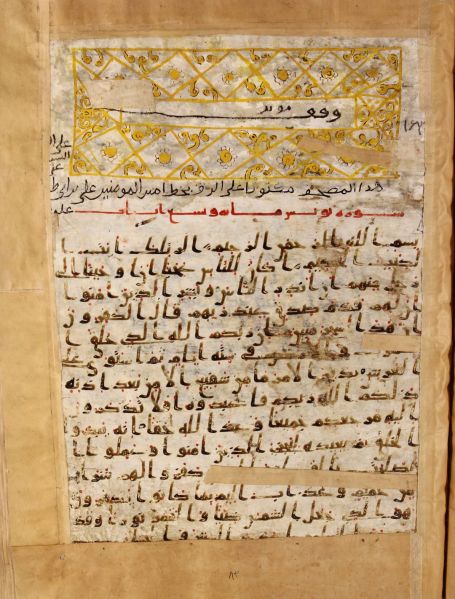 وقف موبد
هذا المصحف مكتوبا على الرق بخط امير المومنين على بن ابى ط
سوره يونس مايه وتسع ايات
بسم الله الرحمن الرحيم الر تلك ايت ا
لكتب الحكيم ا كان للناس عجبا ان اوحينا الى
رجل منهم ان انذر الناس وبشر الذين امنوا ا
ن لهم قدم صدق عند ربهم قال الكفرون
ان هذا لسحر مبين ان ربكم الله الذى خلق ا
والارض فى سته ايام ثم استوى على
العرش يدبر الامر ما من شفيع الا من بعد اذنه
ذلكم الله ربكم فاعبدوه افلا تذكرون
اليه مرجعكم جميعا وعد الله حقا انه يبدوا
الخلق ثم يعيده ليجزى الذين امنوا وعملوا ا
لصلحت كفروا لهم شراب
من حميم وعذاب اليم بما كانوا يكفرون
هو الذى جعل الشمس ضيا والقمر نورا وقد